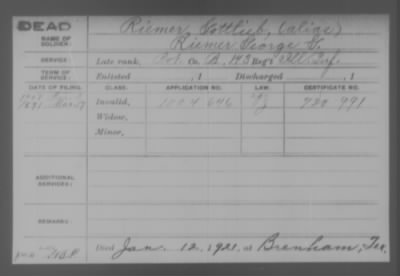 DEAD
NAME OF SOLDIER: Riemer, Gottlieb, (alias)
Riemer George G.
SERVICE: Late rank, Pvt. Co. A, 143 Reg't Ill. Inf.
TERM OF SERVICE: Enlisted , 1 Discharged , 1
DATE OF FILING. CLASS. APPLICATION NO. LAW. CERTIFICATE NO.
1891 Invalid, 1004 646 720 991
Widow,
Minor,
ADDITIONAL SERVICES:
REMARKS:
Died Jan. 12, 1921, at Brenham, Tex.